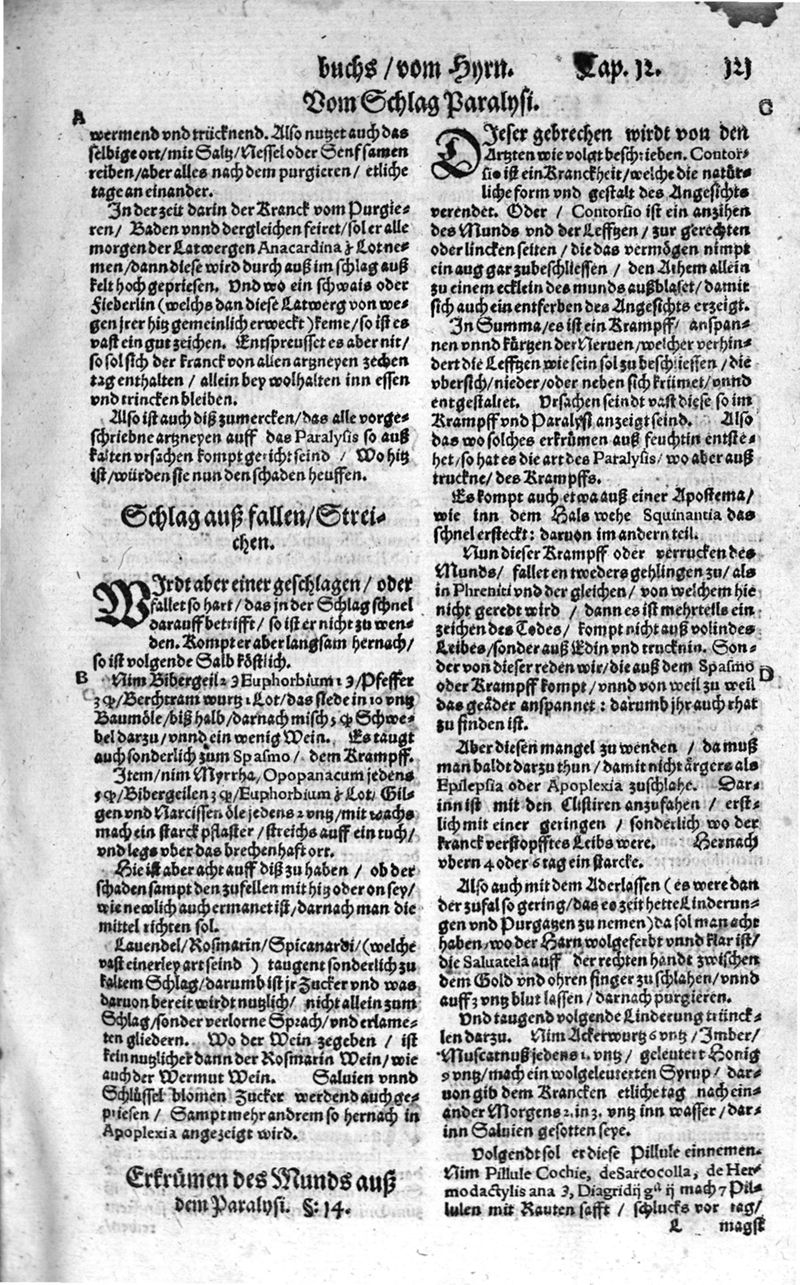 buchs / vom Hyrn. Cap. 12. 121
Vom Schlag Paralysi.
A
wermend vnd trücknend. Also nutzet auch das
selbige ort / mit Saltz / Nessel oder Senfsamen
reiben / aber alles nach dem purgieren / etliche
tage an einander.
In der zeit darin der Kranck vom Purgie-
ren / Baden vnnd dergleichen feiret / sol er alle
morgen der Latwergen Anacardina ʒ Lot ne-
men / dann diese wird durch auß im schlag auß
kelt hoch gepriesen. Vnd wo ein schwais oder
Fieberlin (welchs dan diese Latwerg von we-
gen jrer hitz gemeinlich erweckt) keme / so ist es
vast ein gut zeichen. Entspreusset es aber nit /
so sol sich der kranck von allen artzneyen zechen
tag enthalten / allein bey wolhalten inn essen
vnd trincken bleiben.
Also ist auch diß zumercken / das alle vorge-
schriebne artzneyen auff das Paralysis so auß
kalten vrsachen kompt gericht seind / Wo hitz
ist / würden sie nun den schaden heuffen.
Schlag auß fallen / Strei-
chen.
WIrdt aber einer geschlagen / oder
fallet so hart / das jn der Schlag schnel
darauff betrifft / so ist er nicht zu wen-
den. Kompt er aber langsam hernach /
so ist volgende Salb köstlich.
B
Nim Bibergeil 2 ℈ Euphorbium 1 ℈ / Pfeffer
3 qͥ / Bertchtram wurtz 1 Lot / das siede in 10 vntz
Baumöle / biß halb / darnach misch 5 qͥ Schwe-
bel darzu / vnnd ein wenig Wein. Es taugt
auch sonderlich zum Spasmo / dem Krampff.
Item / nim Myrrha, Opopanacum jedens
5 qͥ / Bibergeilen 3 qͥ / Euphorbium ʒ Lot / Gil-
gen vnd Narcissen öle jedens 2 vntz / mit wachs
mach ein starck pflaster / streichs auff ein tuch /
vnd legs vber das brechenhafft ort.
Hie ist aber acht auff diß zu haben / ob der
schaden sampt den zufellen mit hitz oder on sey /
wie newlich auch ermanet ist / darnach man die
mittel richten sol.
Lauendel / Rosmarin / Spicanardi / (welche
vast einerley art seind ) taugent sonderlich zu
kaltem Schlag / darumb ist jr Zucker vnd was
daruon bereit wirdt nutzlich / nicht allein zum
Schlag / sonder verlorne Sprach / vnd erlame-
ten gliedern. Wo der Wein zegeben / ist
kein nutzlicher dann der Rosmarin Wein / wie
auch der Wermut Wein. Saluien vnnd
Schlüssel blomen Zucker werdend auch ge-
priesen / Sampt mehr andrem so hernach in
Apoplexia angezeigt wird.
Erkrümen des Munds auß
dem Paralysi. §: 14.
C
DIeser gebrechen wirdt von den
Artzten wie volgt beschrieben. Contor-
sio ist ein Kranckheit / welche die natür-
liche form vnd gestalt des Angesichts
verendet. Oder / Contorsio ist ein anzihen
des Munds vnd der Leffzen / zur gerechten
oder lincken seiten / die das vermögen nimpt
ein aug gar zubeschliessen / den Athem allein
zu einem ecklein des munds außblaset / damit
sich auch ein entferben des Angesichts erzeigt.
In Summa / es ist ein Krampff / anspan-
nen vnnd kürtzen der Neruen / welcher verhin-
dert die Leffzen wie sein sol zu beschliessen / die
vbersich / nieder / oder neben sich krümet / vnnd
entgestaltet. Vrsachen seindt vast diese so im
Krampff vnd Paralysi anzeigt seind. Also
das wo solches erkrümen auß feuchtin entste-
het / so hat es die art des Paralysis / wo aber auß
truckne / des Krampffs.
Es kompt auch etwa auß einer Apostema /
wie inn dem Hals wehe Squinantia das
schnel ersteckt: daruon im andern teil.
Nun dieser Krampff oder verrucken des
Munds / fallet entweders gehlingen zu / als
in Phreniti vnd der gleichen / von welchem hie
nicht geredt wird / dann es ist mehrteils ein
zeichen des Todes / kompt nicht auß volin des
Leibes / sonder auß Edin vnd trucknin. Son-
der von dieser reden wir / die auß dem Spasmo
D
oder Krampff kompt / vnnd von weil zu weil
das geäder anspannet: darumb jhr auch rhat
zu finden ist.
Aber diesen mangel zu wenden / da muß
man baldt darzu thun / damit nicht ärgers als
Epilepsia oder Apoplexia zuschlahe. Dar-
inn ist mit den Clistiren anzufahen / erst-
lich mit einer geringen / sonderlich wo der
kranck verstopfftes Leibs were. Hernach
vbern 4 oder 6 tag ein starcke.
Also auch mit dem Aderlassen (es were dan
der zufal so gering / das es zeit hette Linderun-
gen vnd Purgatzen zu nemen) da sol man acht
haben / wo der Harn wolgeferbt vnnd klar ist /
die Saluatela auff der rechten handt zwischen
dem Gold vnd ohren finger zu schlahen / vnnd
auff 3 vntz blut lassen / darnach purgieren.
Vnd taugend volgende Linderung trünck-
len darzu. Nim Ackerwurtz 6 vntz / Imber /
Muscatnuß jedens 1. vntz / geleutert Honig
9 vntz / mach ein wolgeleuterten Syrup / dar-
uon gib dem Krancken etliche tag nach ein-
ander Morgens 2. in 3. vntz inn wasser / dar-
inn Saluien gesotten seye.
Volgendt sol er diese Pillule einnemen.
Nim Pillule Cochie, de Sarcocolla, de Her-
modactylis ana ℈, Diagridij gͣ ij mach 7 Pil-
lulen mit Rauten safft / schlucks vor tag /
L magst